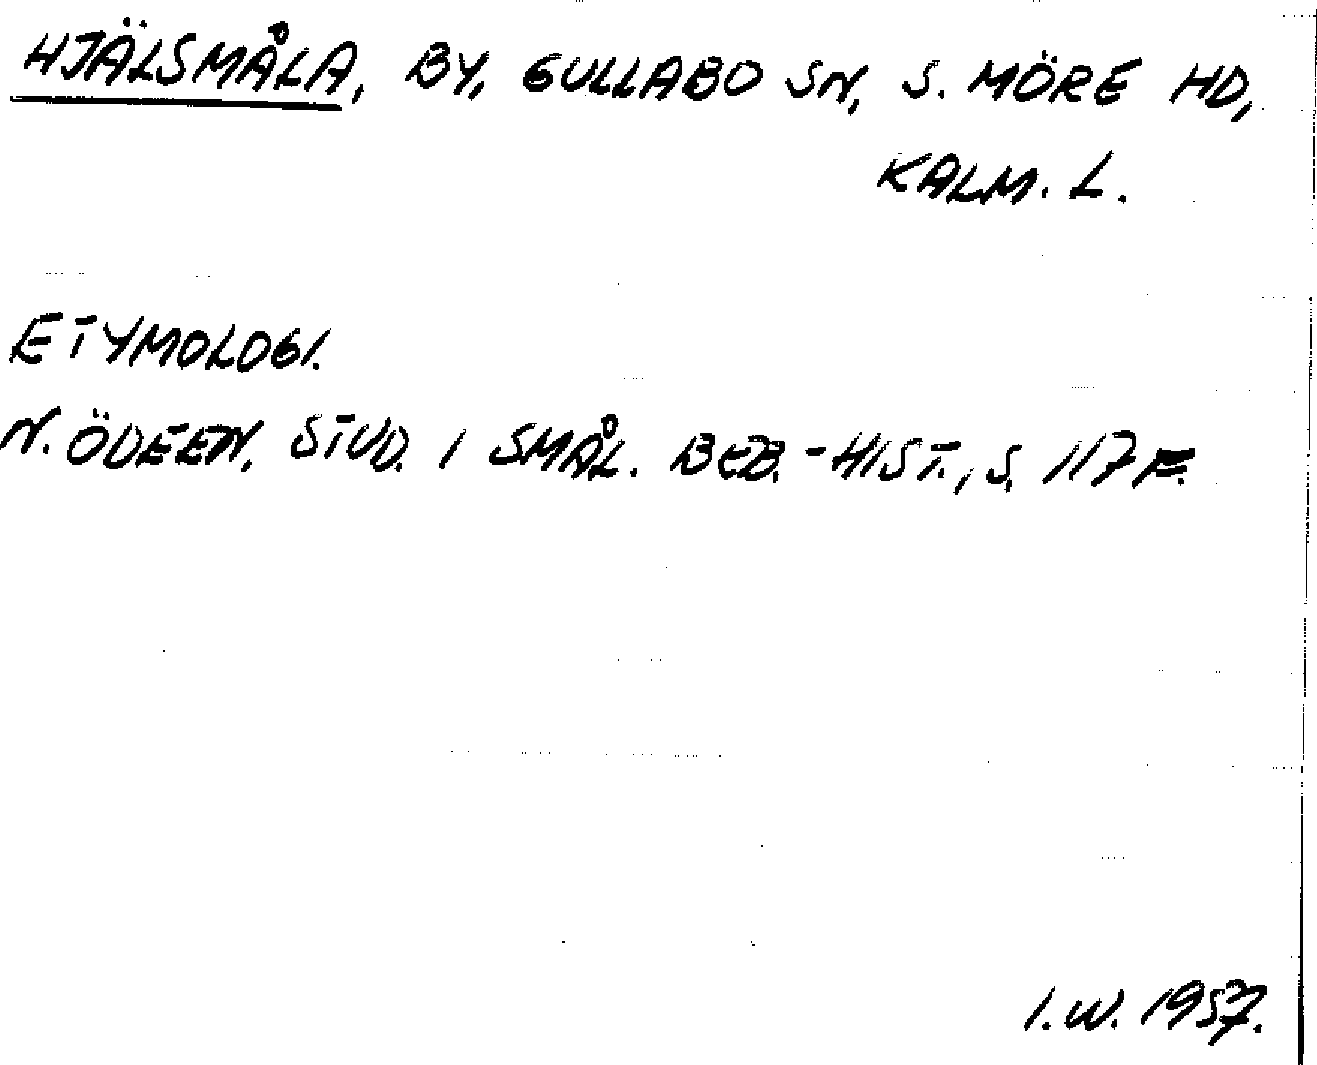 HJÄLSMÅLA, BY, GULLABO SN, S. MÖRE HD,
KALM. L.
ETYMOLOGI.
N. ÖDEEN, STUD. I SMÅL. BEB.-HIST., S. 117 F.
I.W. 1957.